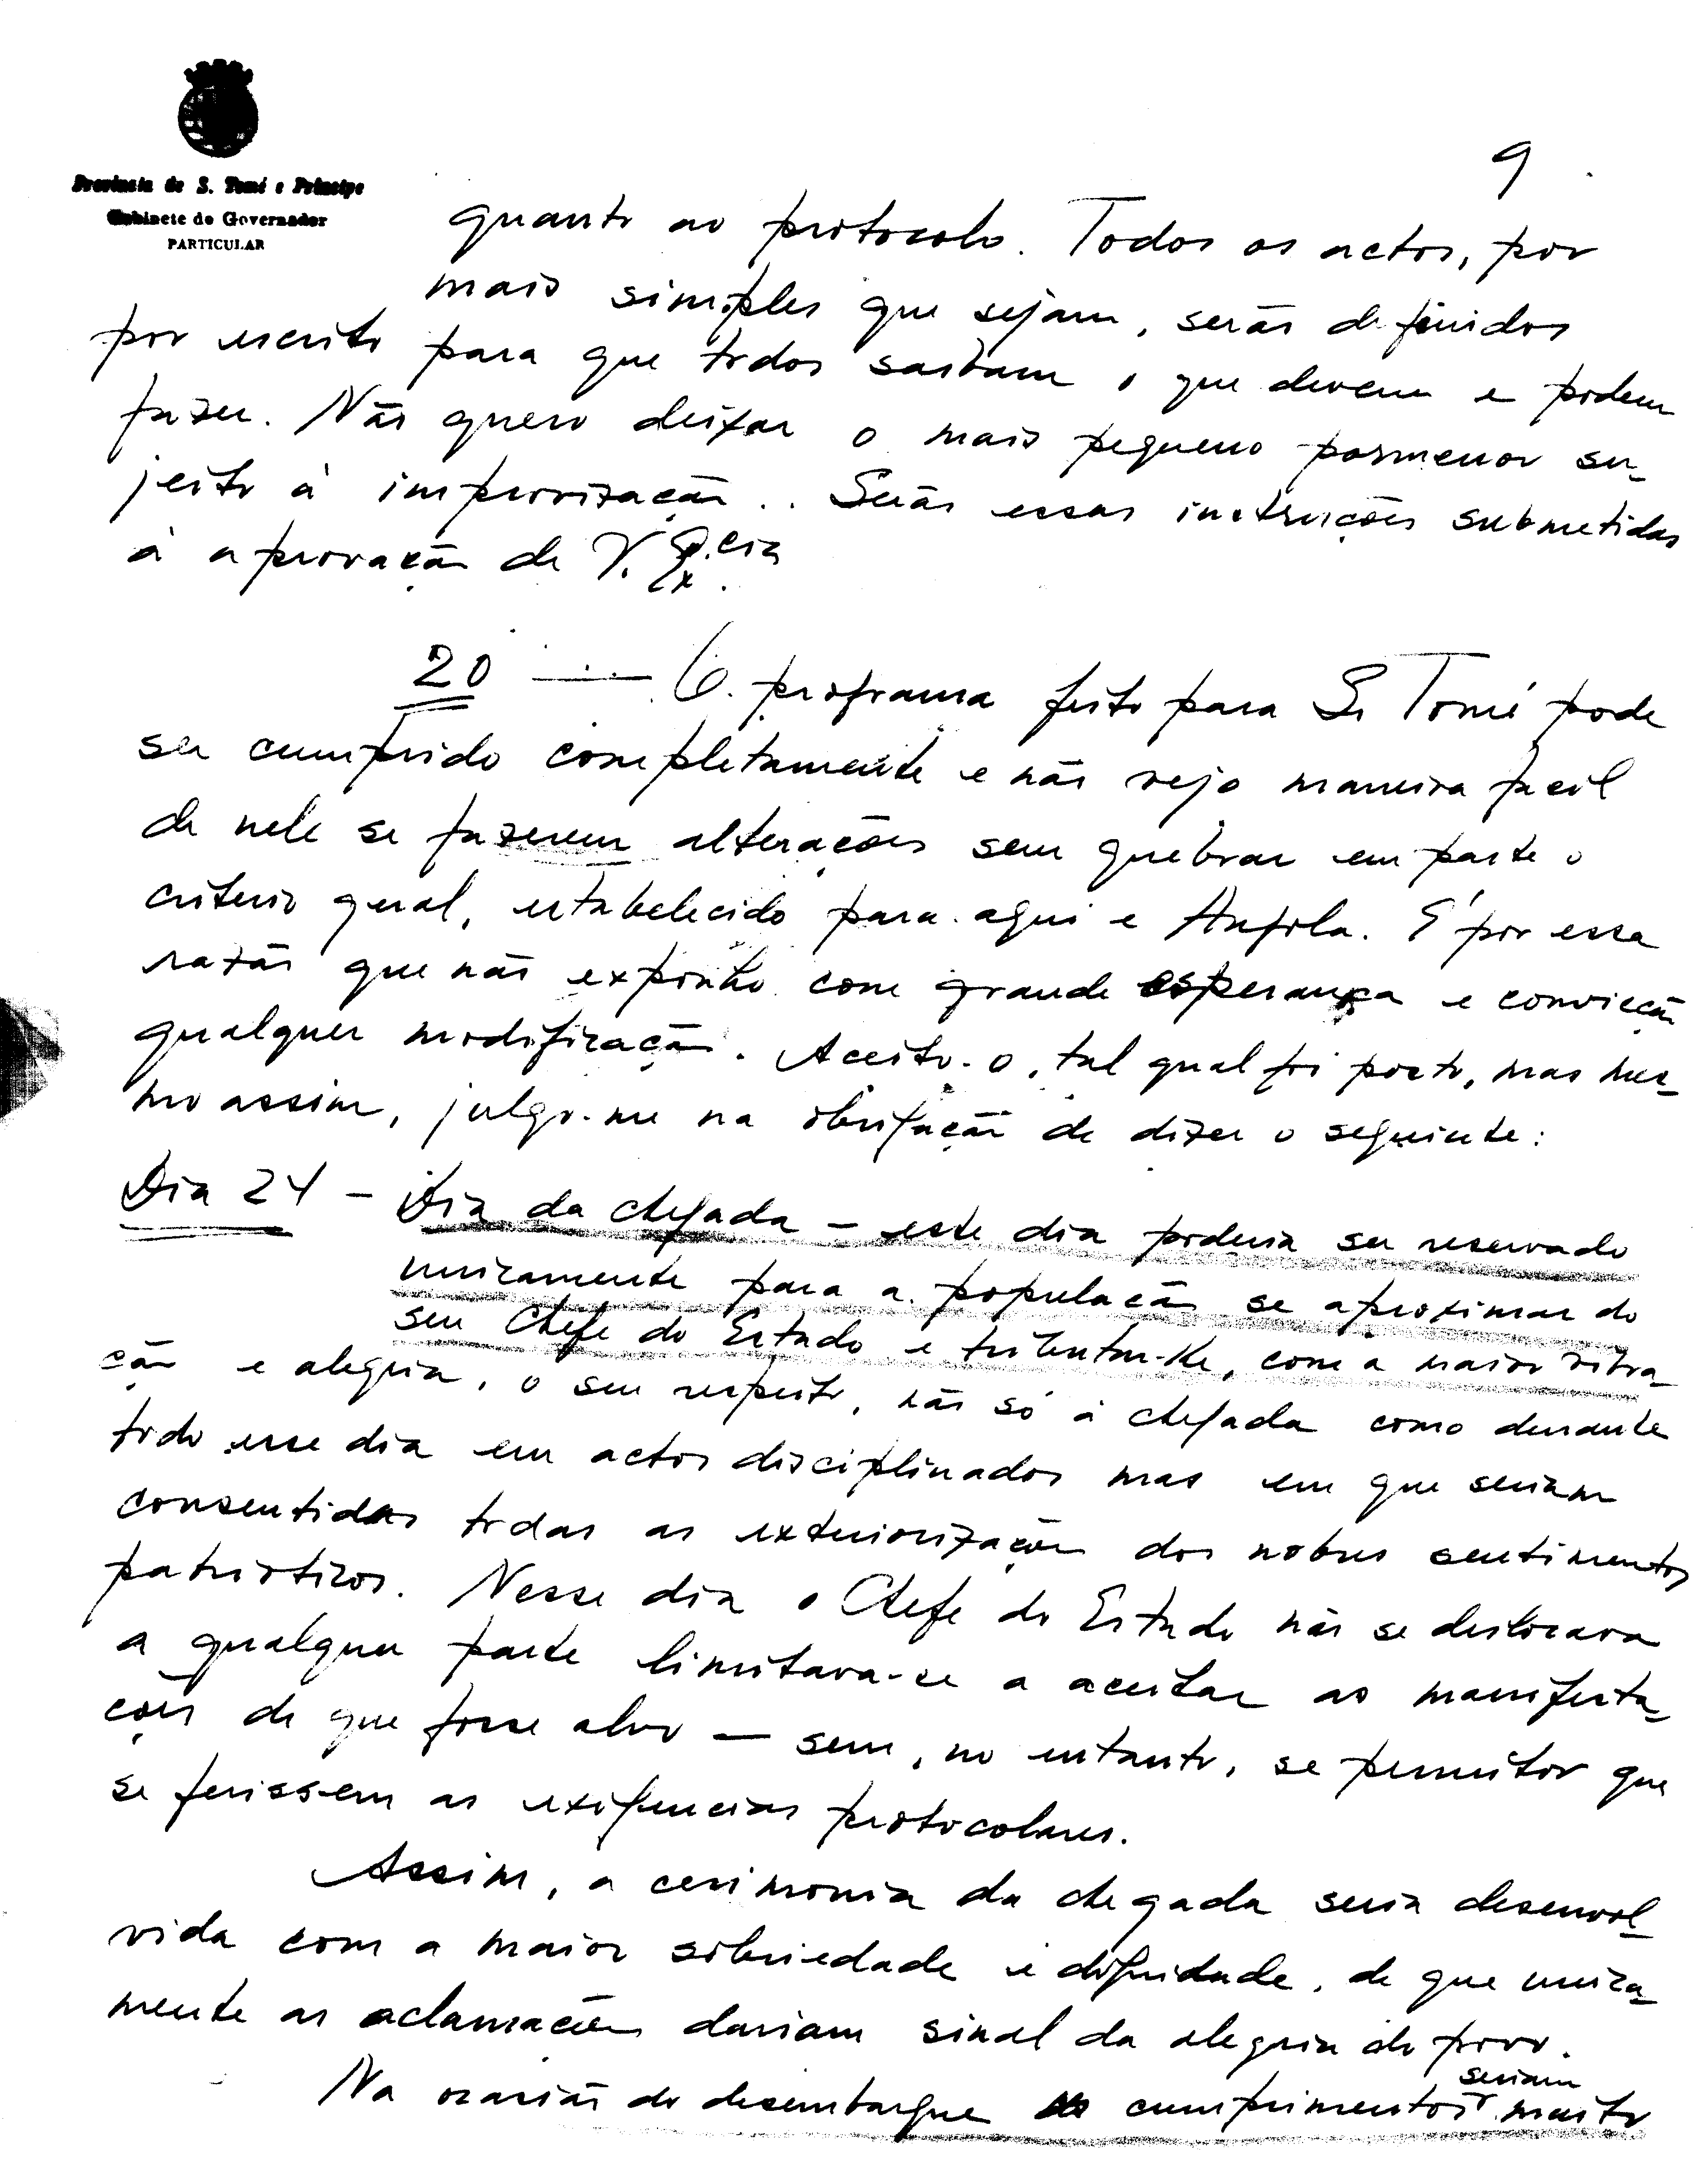 9
Provincia de S. Tomé e Principe
Gabinete do Governador
PARTICULAR
quanto ao protocolo. Todos os actos, por
mais simples que sejam, serão definidos
por escrito para que todos saibam o que devem e podem
fazer. Não quero deixar o mais pequeno pormenor su-
jeito à improvização.. Serão essas instruções submetidas
à aprovação de V. Ex.cia
20 — O programa feito para S. Tomé pode
ser cumprido completamente e não vejo maneira facil
de nele se fazerem alterações sem quebrar em parte o
criterio geral, estabelecido para aqui e Angola. É por essa
razão que não exponho com grande esperança e convicção
qualquer modificação. Aceito-o, tal qual foi posto, mas mes-
mo assim, julgo-me na obrigação de dizer o seguinte:
Dia 24 - Dia da chegada - este dia poderia ser reservado
unicamente para a população se aproximar do
seu Chefe do Estado e tributar-lhe, com a maior vibra-
ção e alegria, o seu respeito, não só à chegada como durante
todo esse dia em actos disciplinados mas em que seriam
consentidas todas as exteriorizações dos nobres sentimentos
patrioticos. Nesse dia o Chefe do Estado não se deslocava
a qualquer parte limitava-se a aceitar as manifesta-
ções de que fosse alvo — sem, no entanto, se permitir que
se ferissem as exigencias protocolares.
Assim, a cerimonia da chegada seria desenvol-
vida com a maior sobriedade e dignidade, de que unica-
mente as aclamações dariam sinal da alegria do povo.
Na ocasião do desembarque os cumprimentos seriam muito